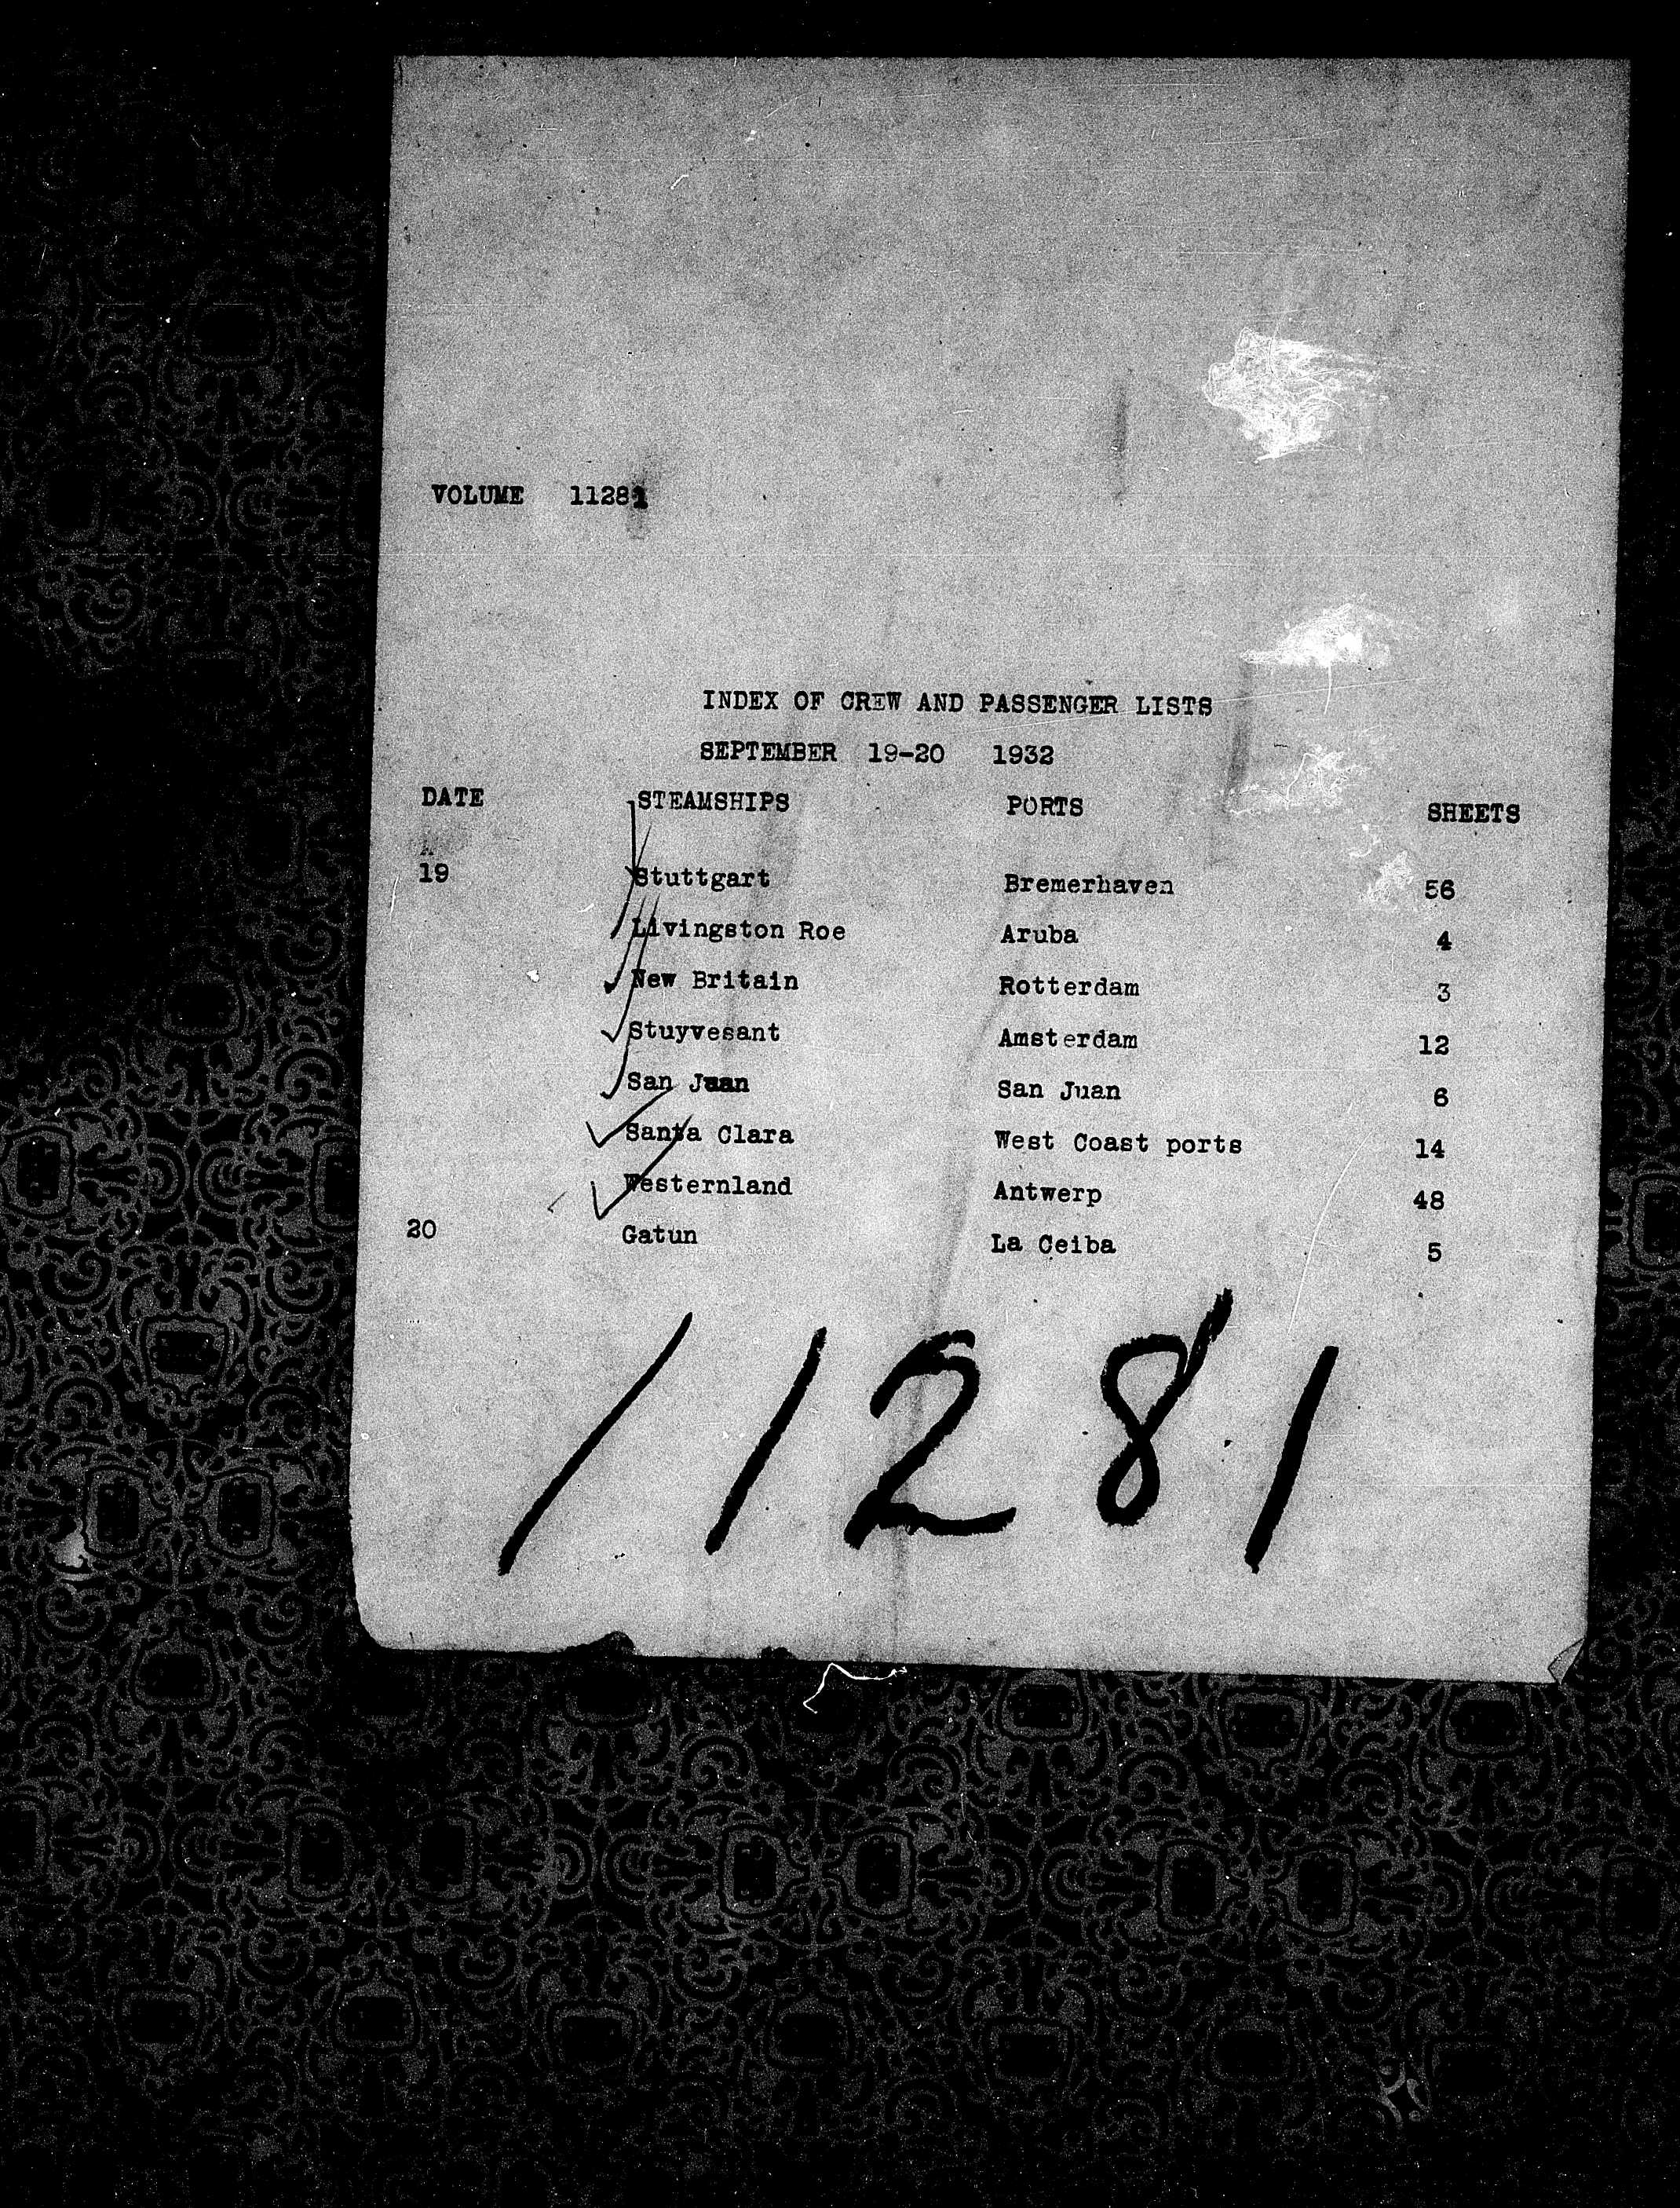 VOLUME 11281
INDEX OF CREW AND PASSENGER LISTS
SEPTEMBER 19-20 1932
DATE STEAMSHIPS PORTS SHEETS
19 Stuttgart Bremerhaven 56
Livingston Roe Aruba 4
New Britain Rotterdam 3
Stuyvesant Amsterdam 12
San Juan San Juan 6
Santa Clara West Coast ports 14
Westernland Antwerp 48
20 Gatun La Ceiba 5
11281